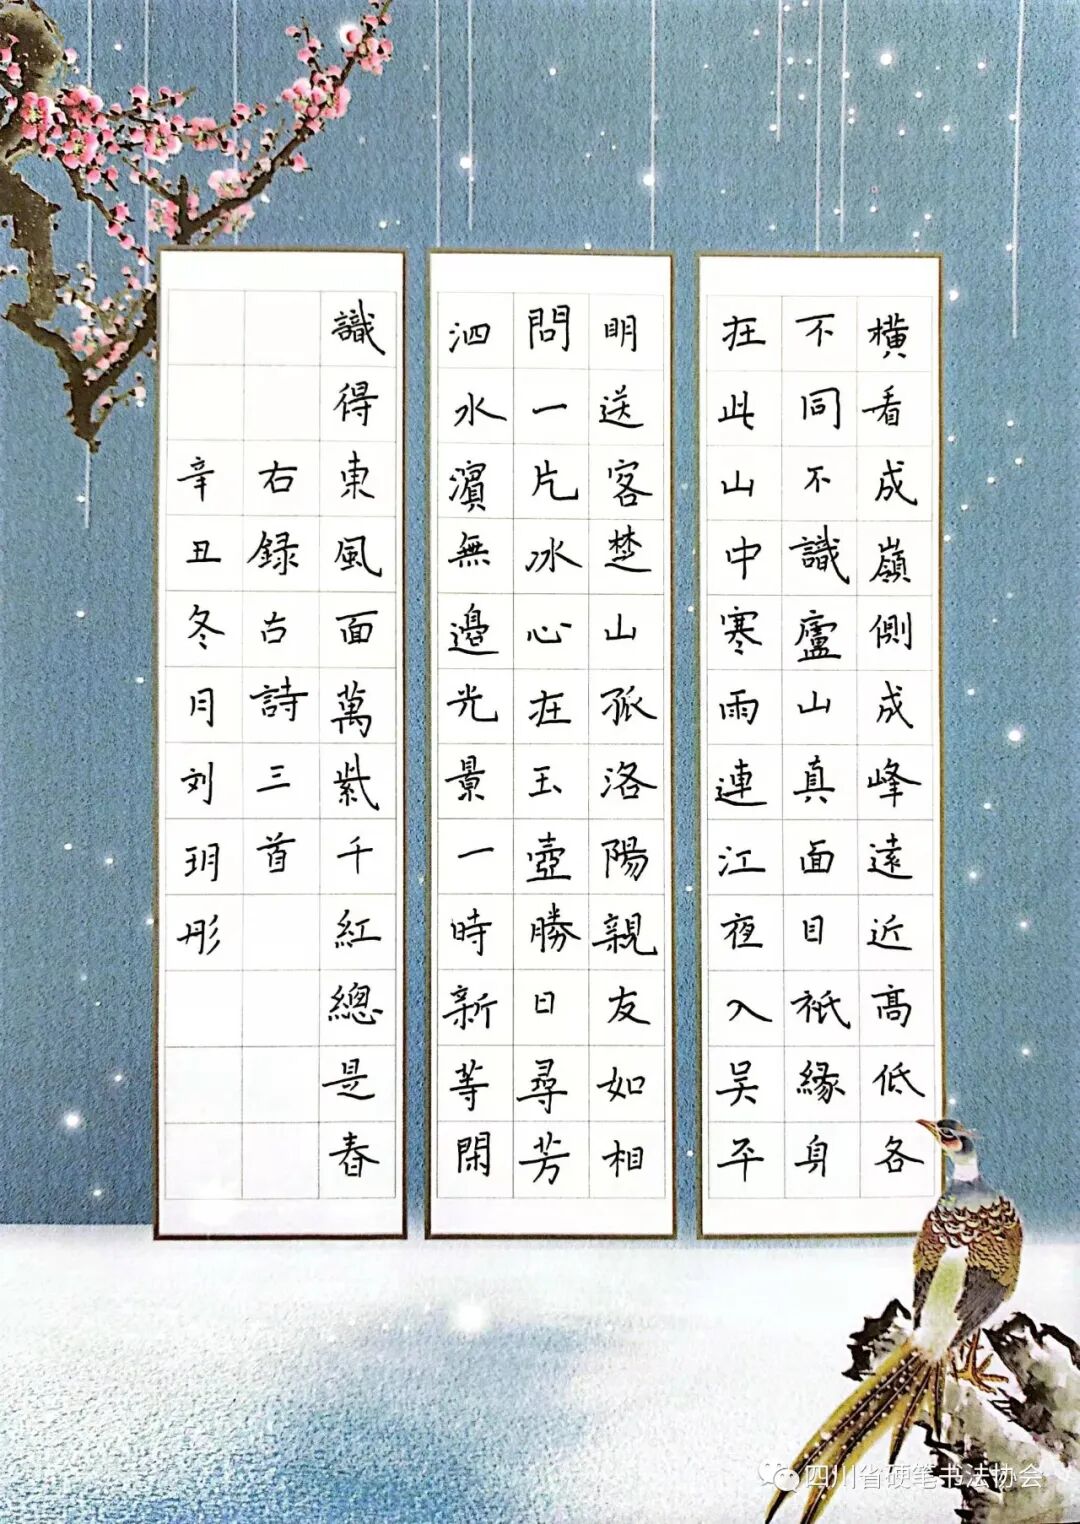 橫看成嶺側成峰遠近高低各
不同不識廬山真面目衹緣身
在此山中寒雨連江夜入吴平
明送客楚山孤洛陽親友如相
問一片冰心在玉壺勝日尋芳
泗水濱無邊光景一時新等閑
識得東風面萬紫千紅總是春
右録古詩三首
辛丑冬月刘玥彤
四川省硬笔书法协会